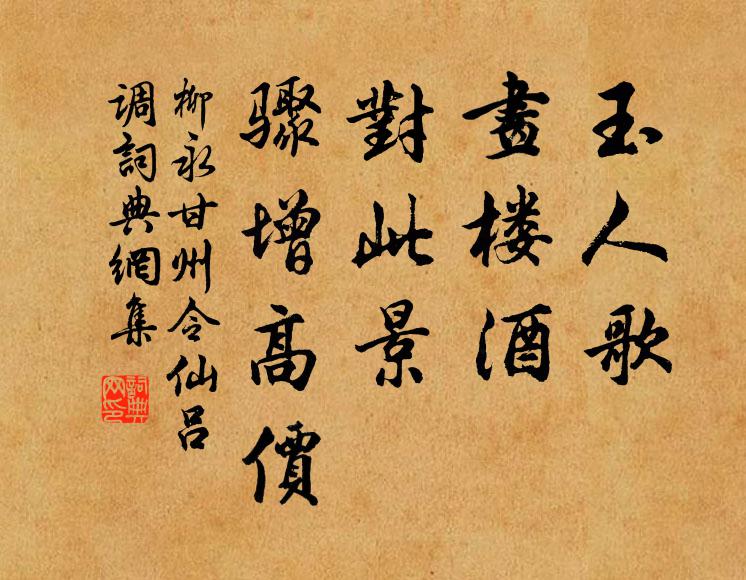 玉人歌
畫楼酒
對此景
驟增高價
柳永甘州令仙呂
調詞典網集
詞典網印